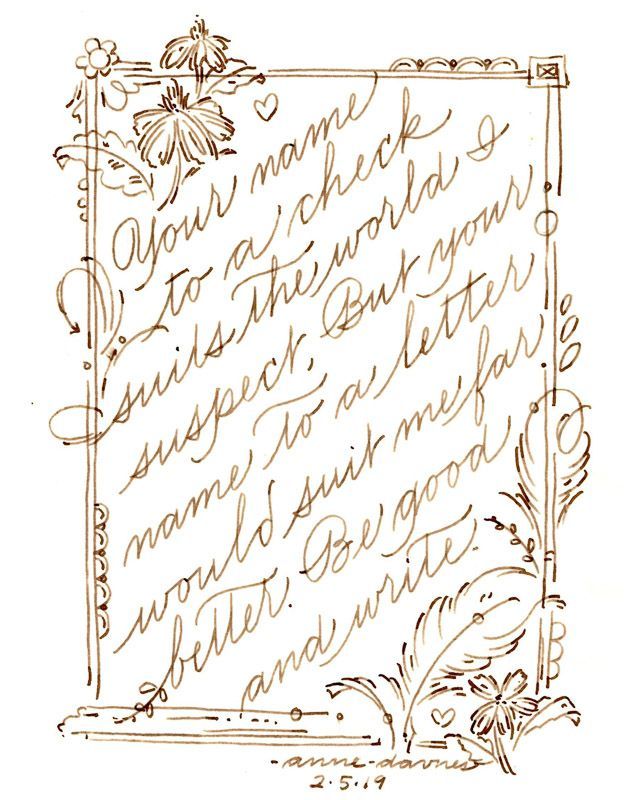 Your name
to a check
suits the world I
suspect, But your
name to a letter
would suit me far
better. Be good
and write.
-anne-davnes
2.5.19